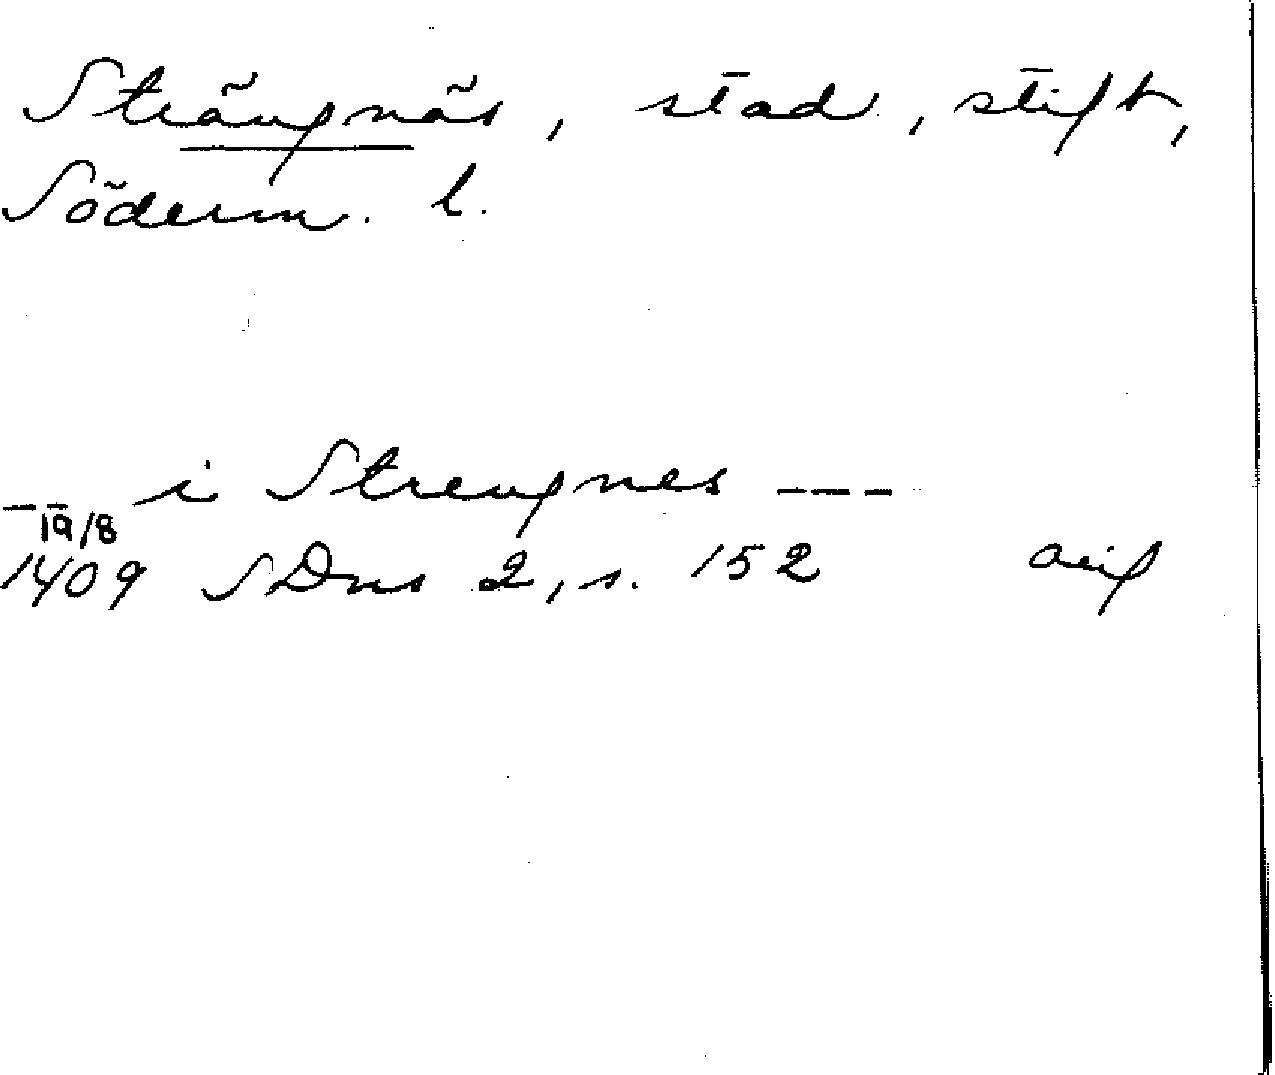 Strängnäs, stad, stift,
Söderm. l.
-- i Strengnes ---
19/8
1409 SDns 2, s. 152 avs